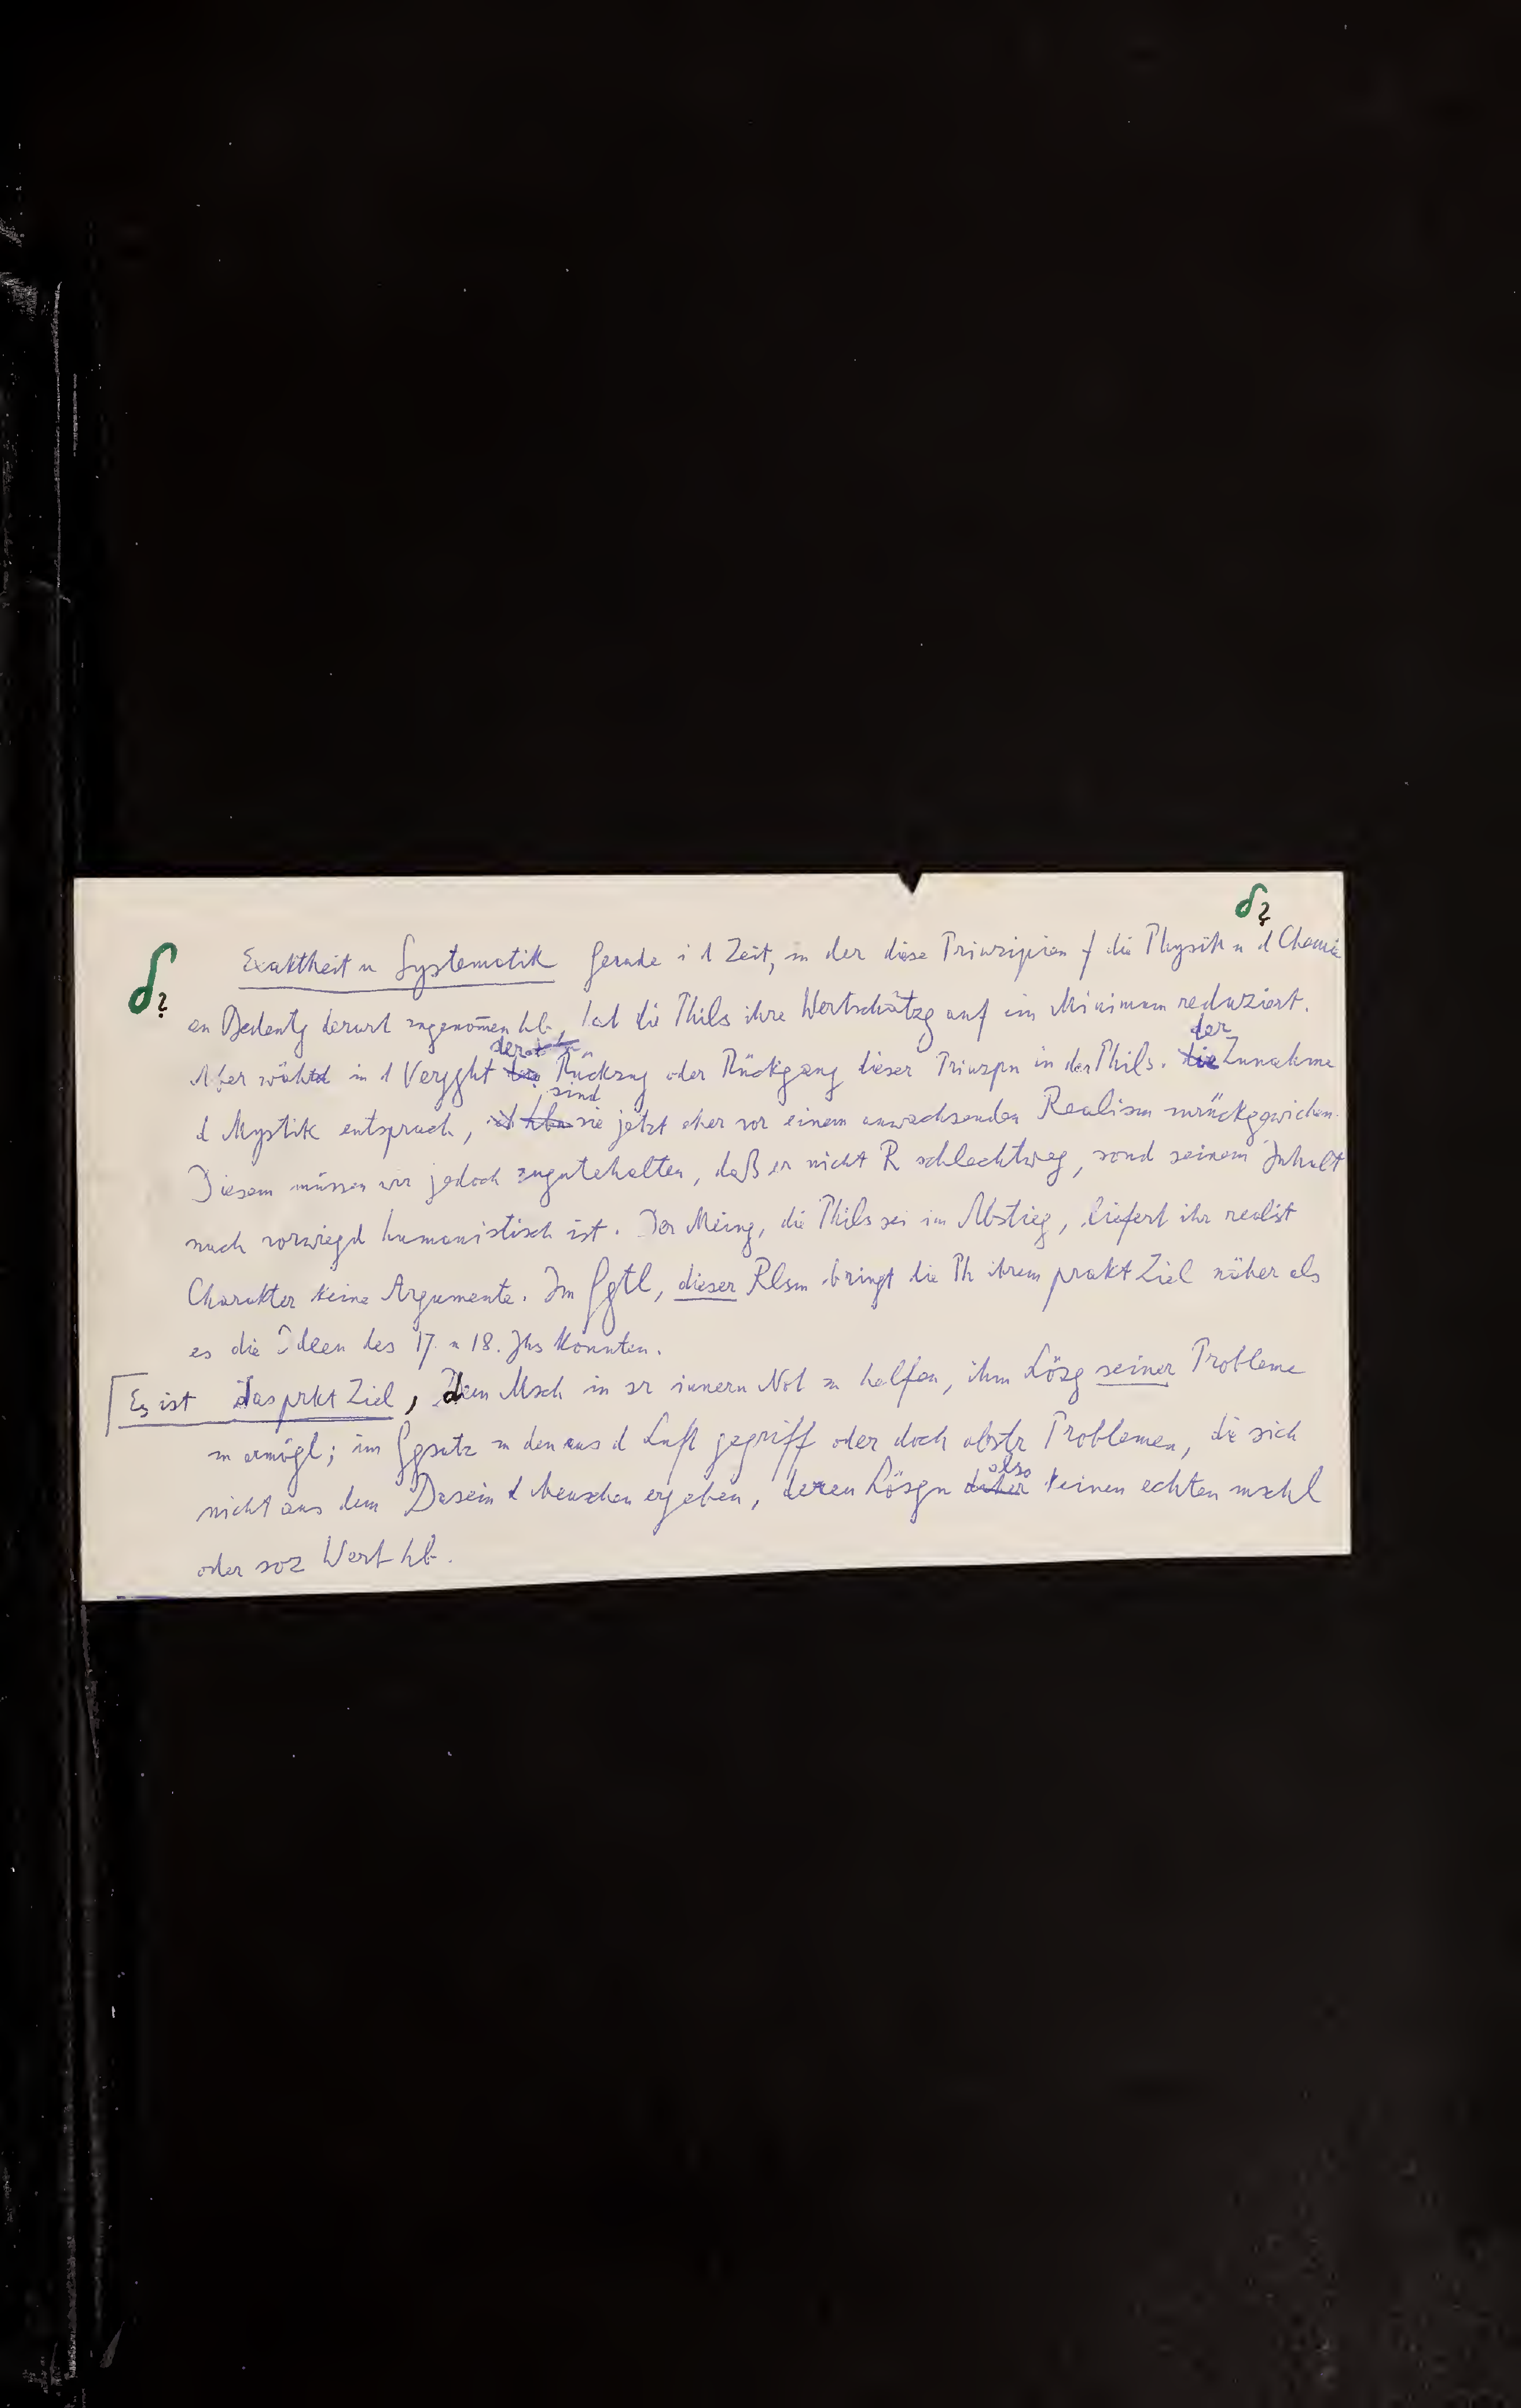 δ?
δ? Exaktheit u Systematik Gerade i d Zeit, in der diese Prinzipien f die Physik u d Chemie
an Bedeutg derart zugenom̄en hb, hat die Phils ihre Wertschätzg auf ein Minimum reduziert.
Aber währd in d Vergght der Rückzug oder Rückgang dieser Prinzpn in der Phils. der Zunahme
d Mystik entsprach, sind sie jetzt eher vor einem anwachsenden Realism zurückgewichen.
Diesem müssen wir jedoch zugutehalten, daß er nicht R schlechtweg, sond seinem Inhalt
nach vorwiegd humanistisch ist. Der Meing, die Phils sei im Abstieg, liefert ihr realist
Charakter keine Argumente. Im Ggtl, dieser Rlsm bringt die Ph ihrem prakt Ziel näher als
es die Ideen des 17. u 18. Jhs konnten.
Es ist das prkt Ziel, dem Msch in sr innern Not zu helfen, ihm Lösg seiner Probleme
zu ermögl; im Ggsatz zu den aus d Luft gegriff oder doch abstr Problemen, die sich
nicht aus dem Dasein d Menschen ergeben, deren Lösgn daher also keinen echten mschl
oder soz Wert hb.